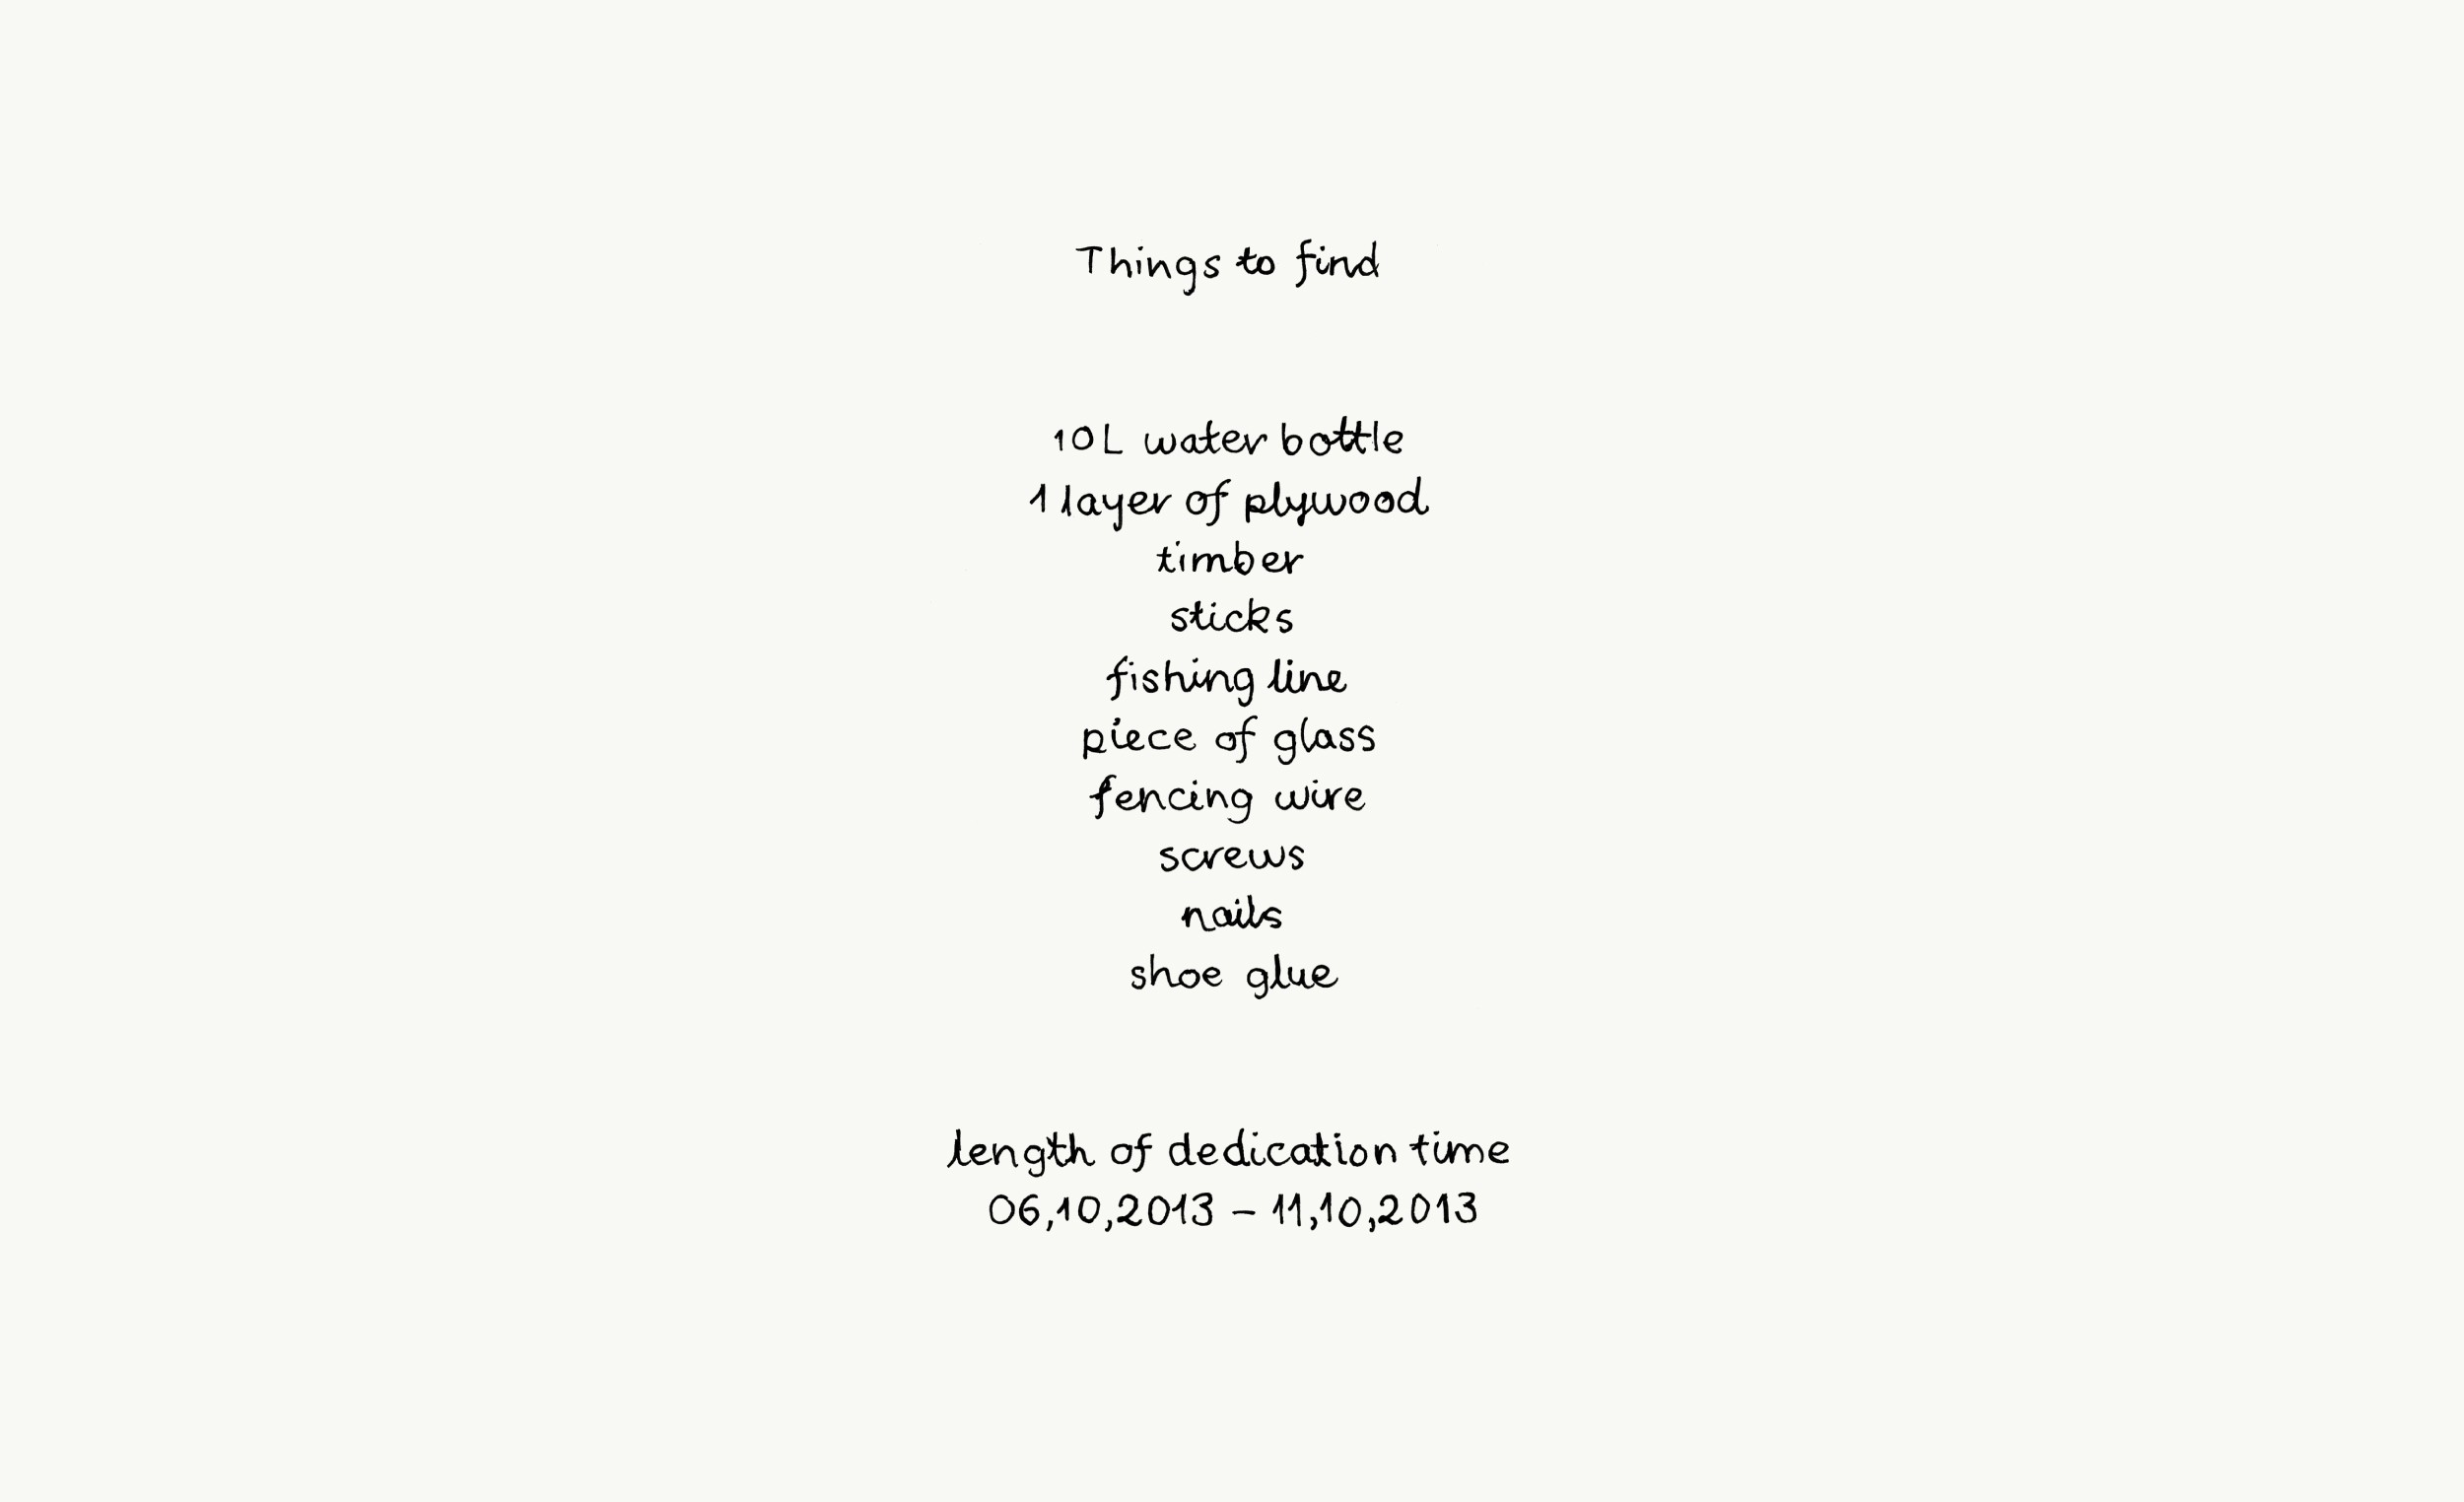 Things to find
10L water bottle
1 layer of plywood
timber
sticks
fishing line
piece of glass
fencing wire
screws
nails
shoe glue
length of dedication time
06,10,2013 – 11,10,2013